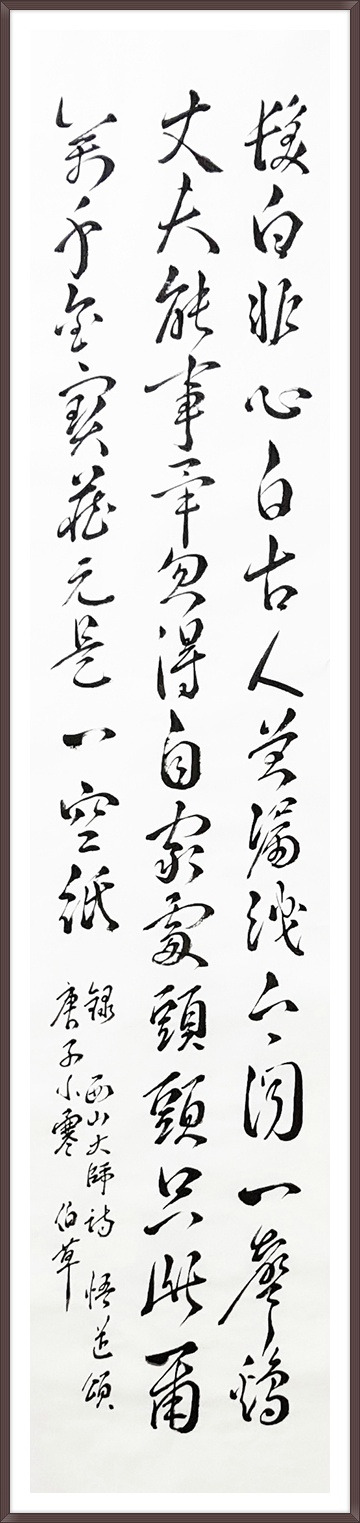 髮白非心白古人曾漏洩今聞一聲鷄
丈夫能事畢忽得自家處頭頭只此爾
萬千金寶藏元是一空紙
錄 西山大師詩 悟道頌
庚子小寒 伯草